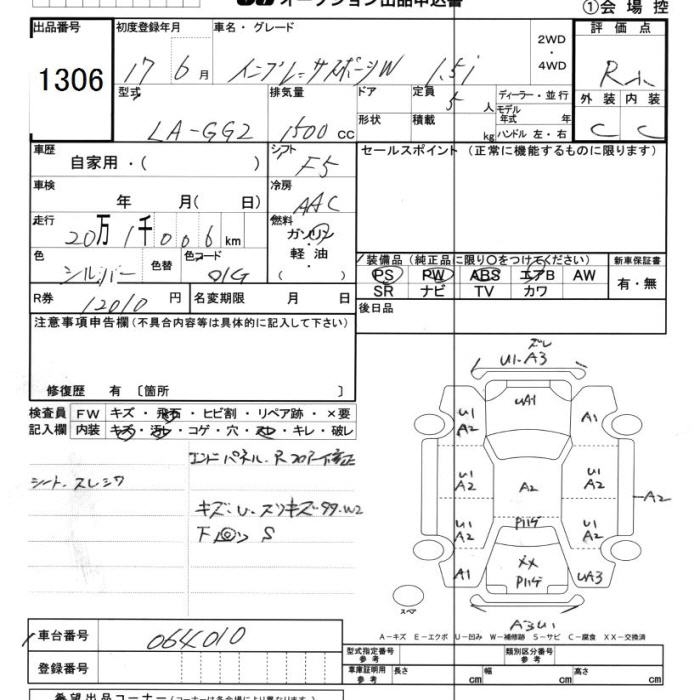 オークション出品申込書
①会場控
出品番号 初度登録年月 車名・グレード 評価点
1306 17 6月 インプレッサスポーツW 1.5i 2WD ・ 4WD
型式 排気量 ドア 定員 5人 ディーラー・並行 外装 内装
LA-GG2 1500 cc 形状 積載 kg モデル年式 年 C C
ハンドル 左・右
車歴 自家用・( ) シフト F5 セールスポイント (正常に機能するものに限ります)
車検 年 月( 日) 冷房 AAC
走行 20万1千006km 燃料 ガソリン・軽油・( )
色 シルバー 色替 色コード 01G
装備品(純正品に限り○をつけてください) 新車保証書
PS PW ABS エアB AW 有・無
SR ナビ TV カワ
R券 12010円 名変期限 月 日 後日品
注意事項申告欄(不具合内容等は具体的に記入して下さい)
修復歴 有 〔箇所 〕
検査員 FW キズ・飛石・ヒビ割・リペア跡・×要
記入欄 内装 キズ・汚レ・コゲ・穴・スレ・キレ・破レ
エンドパネル、Rフロアー修正
シート、スレシワ
キズ・U・スリキズ
S
ズレ
U1-A3
UA1
U1 A2
A1
U1 A2
A2
U1 A2
A2
U1 A2
P11ゲ
U1 A2
A1
XX P11ゲ
UA3
スペア
A3U1
A-キズ E-エクボ U-凹み W-補修跡 S-サビ C-腐食 XX-交換済
車台番号 064010
登録番号
型式指定番号 参考 類別区分番号 参考
車庫証明用 参考 長さ cm 幅 cm 高さ cm
希望出品コーナー(コーナーは各会場により異なります)